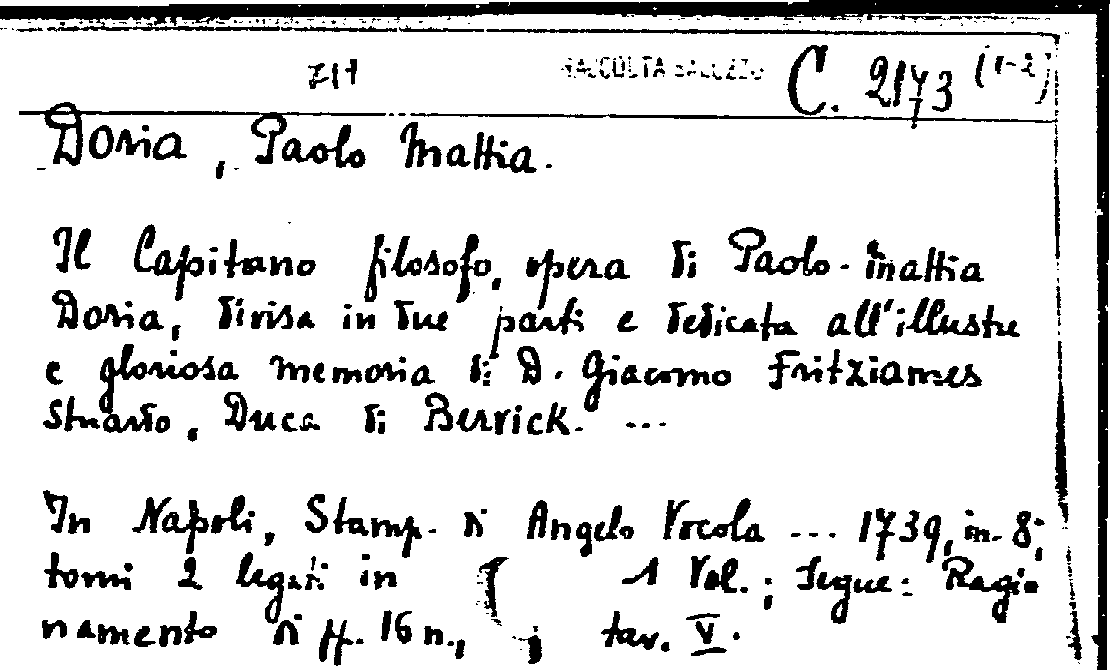 711 RACCOLTA SALUZZO C. 2173 (1-2)
Doria, Paolo Mattia.
Il Capitano filosofo, opera di Paolo-Mattia
Doria, divisa in due parti e dedicata all'illustre
e gloriosa memoria di D. Giacomo Fritziames
Stuardo, Duca di Bervick. ...
In Napoli, Stamp. di Angelo Vocola ... 1739, in-8;
tomi 2 legati in 1 Vol.; Segue: Ragio
namento di pp. 16 n., ; tav. V.